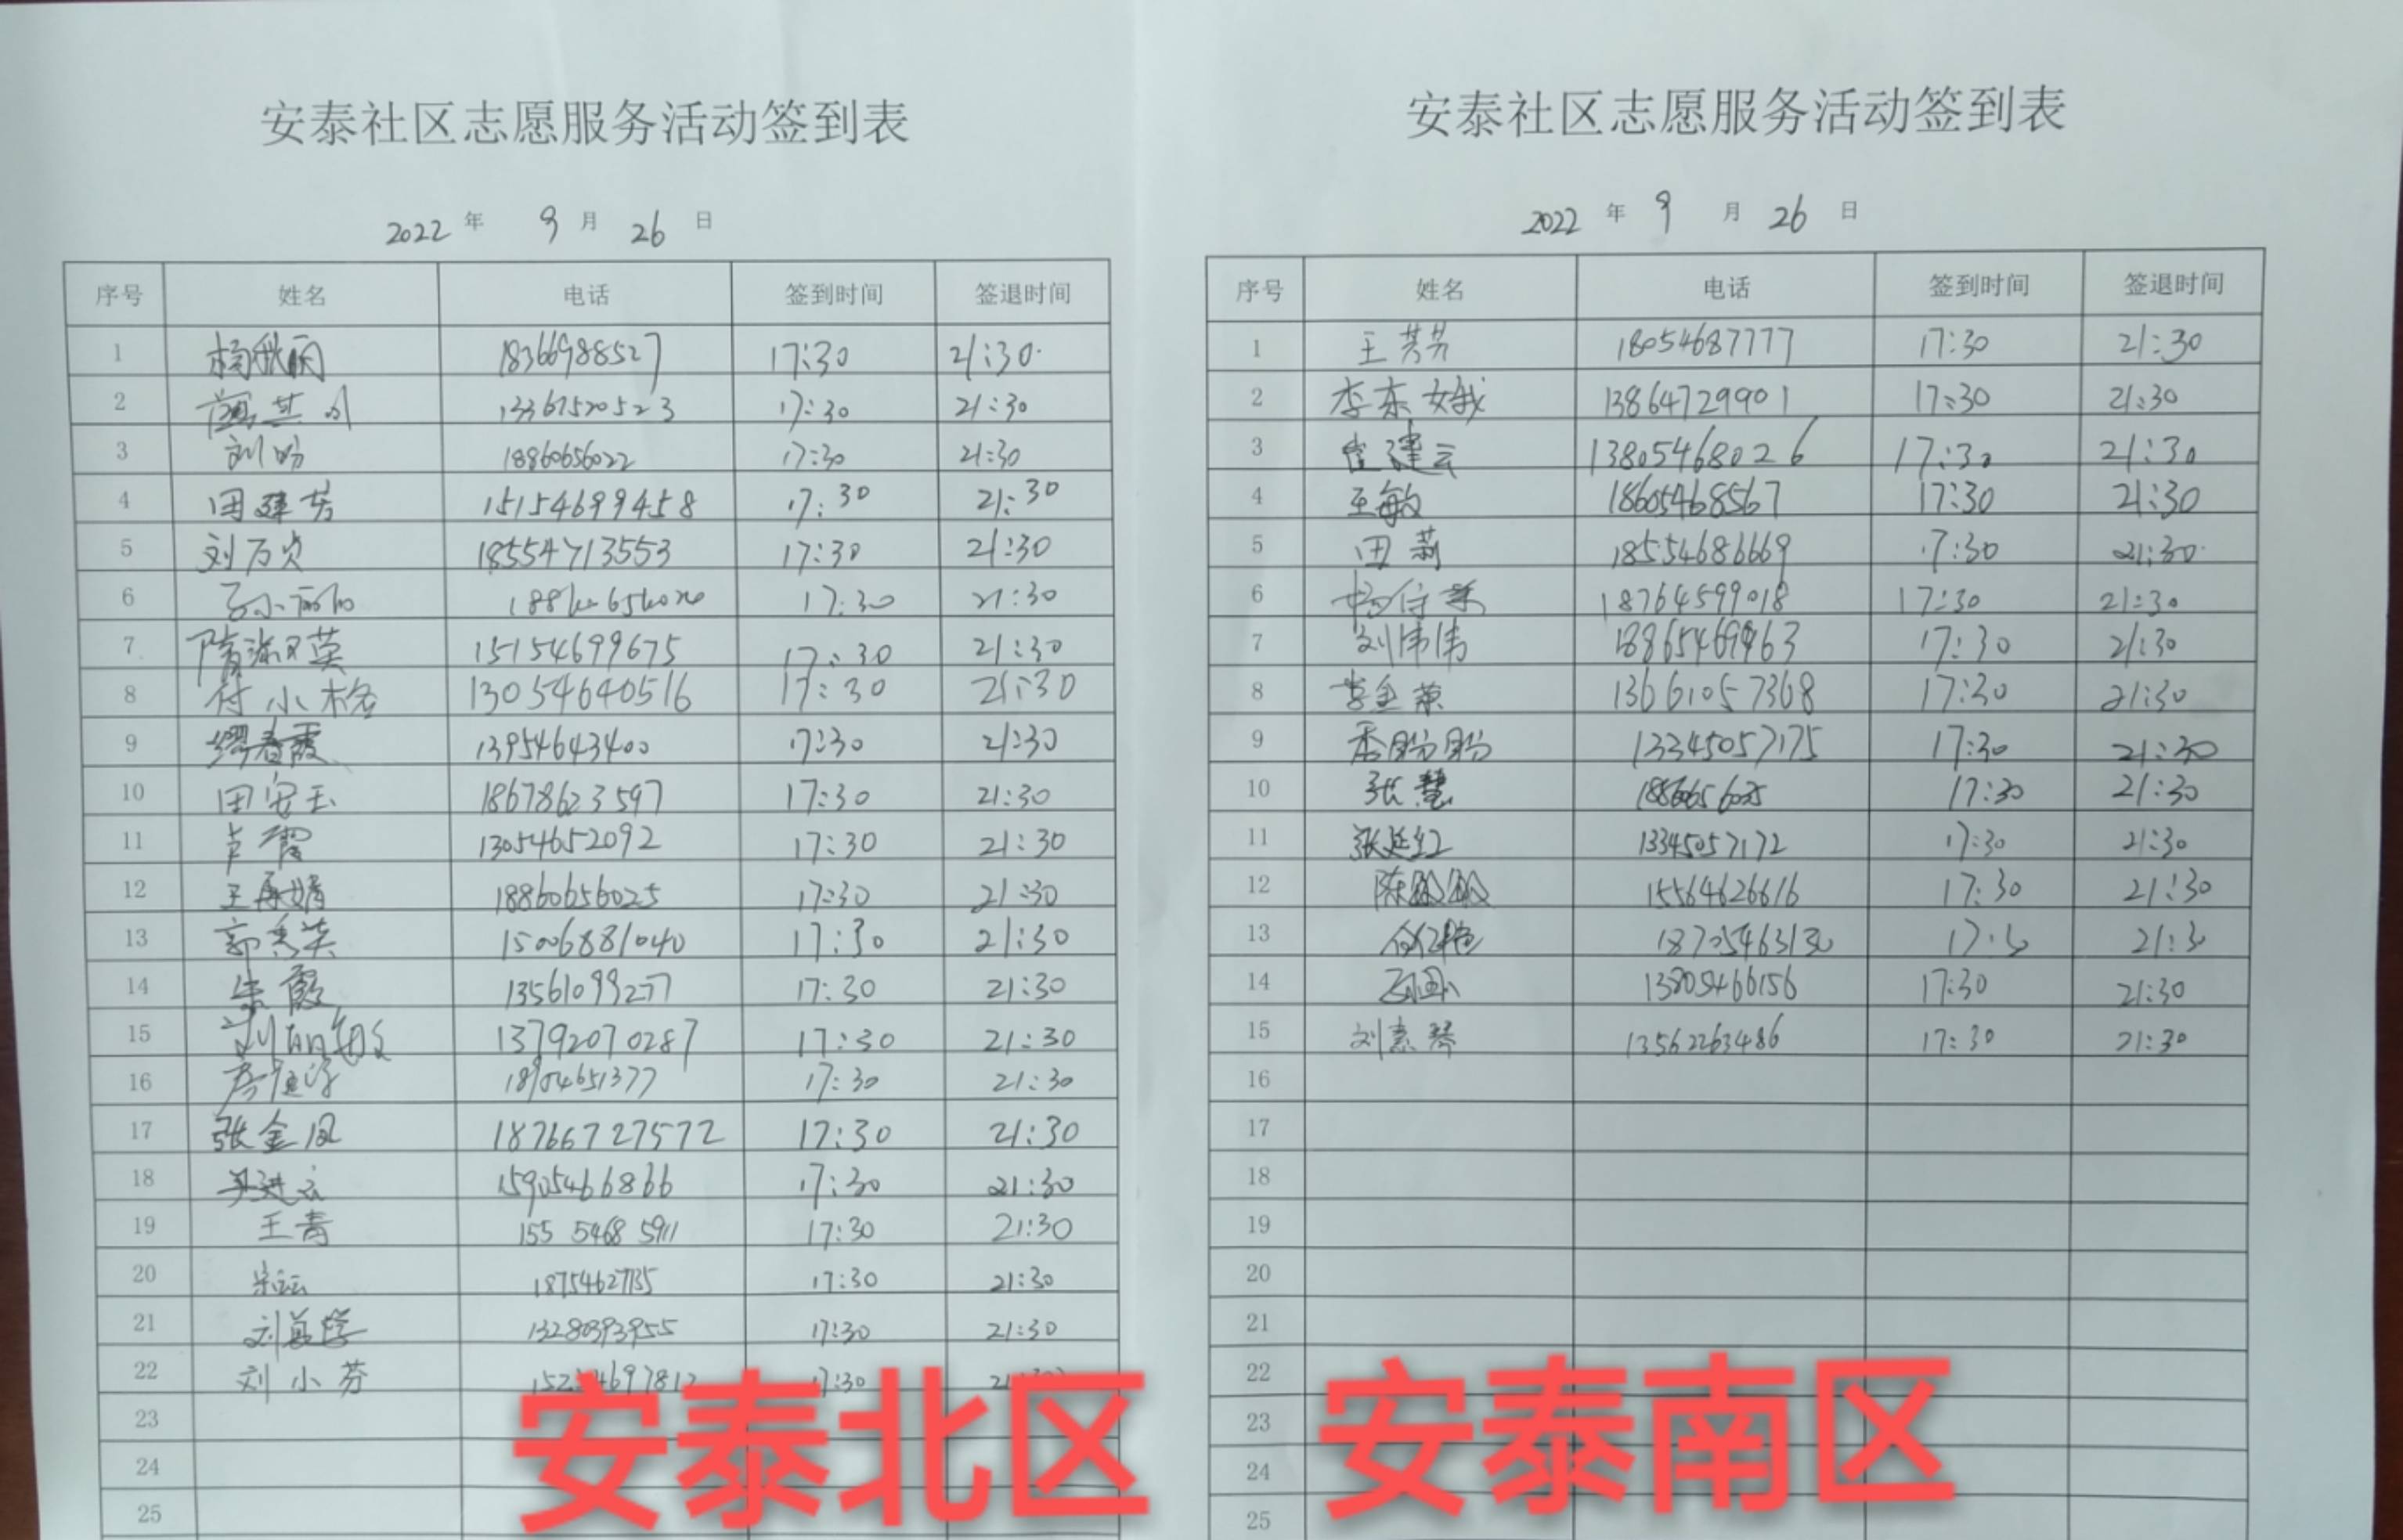 安泰社区志愿服务活动签到表
2022 年 9 月 26 日
序号 姓名 电话 签到时间 签退时间
1 杨秋丽 18366988527 17:30 21:30
2 13361520523 17:30 21:30
3 刘明 18860656022 17:30 21:30
4 田建芳 15154699458 17:30 21:30
5 刘万贞 18554713553 17:30 21:30
6 17:30 21:30
7 隋淑英 15154699675 17:30 21:30
8 付小格 13054640516 17:30 21:30
9 缪春霞 13954643400 17:30 21:30
10 田安玉 18678623597 17:30 21:30
11 卢霞 13054652092 17:30 21:30
12 王再婧 18860656025 17:30 21:30
13 郭秀英 15006881040 17:30 21:30
14 朱霞 13561099277 17:30 21:30
15 刘丽敏 13792070287 17:30 21:30
16 18904651377 17:30 21:30
17 张金凤 18766727572 17:30 21:30
18 吴进云 15905466866 17:30 21:30
19 王青 155 5468 5911 17:30 21:30
20 宋云云 18754627135 17:30 21:30
21 刘 13280393955 17:30 21:30
22 刘小芬 17:30
23
24
25
安泰北区
安泰社区志愿服务活动签到表
2022 年 9 月 26 日
序号 姓名 电话 签到时间 签退时间
1 王芳芳 18054687777 17:30 21:30
2 李东娥 13864729901 17:30 21:30
3 崔建云 13805468026 17:30 21:30
4 王敏 18605468567 17:30 21:30
5 田莉 18554686669 17:30 21:30
6 18764599018 17:30 21:30
7 刘伟伟 18865469963 17:30 21:30
8 李金荣 13661057368 17:30 21:30
9 季盼盼 13345057175 17:30 21:30
10 张慧 17:30 21:30
11 张延红 13345057172 17:30 21:30
12 陈敏敏 15564626616 17:30 21:30
13 18705463130 17:30 21:30
14 13805466156 17:30 21:30
15 刘素琴 13562263486 17:30 21:30
16
17
18
19
20
21
22
23
24
25
安泰南区